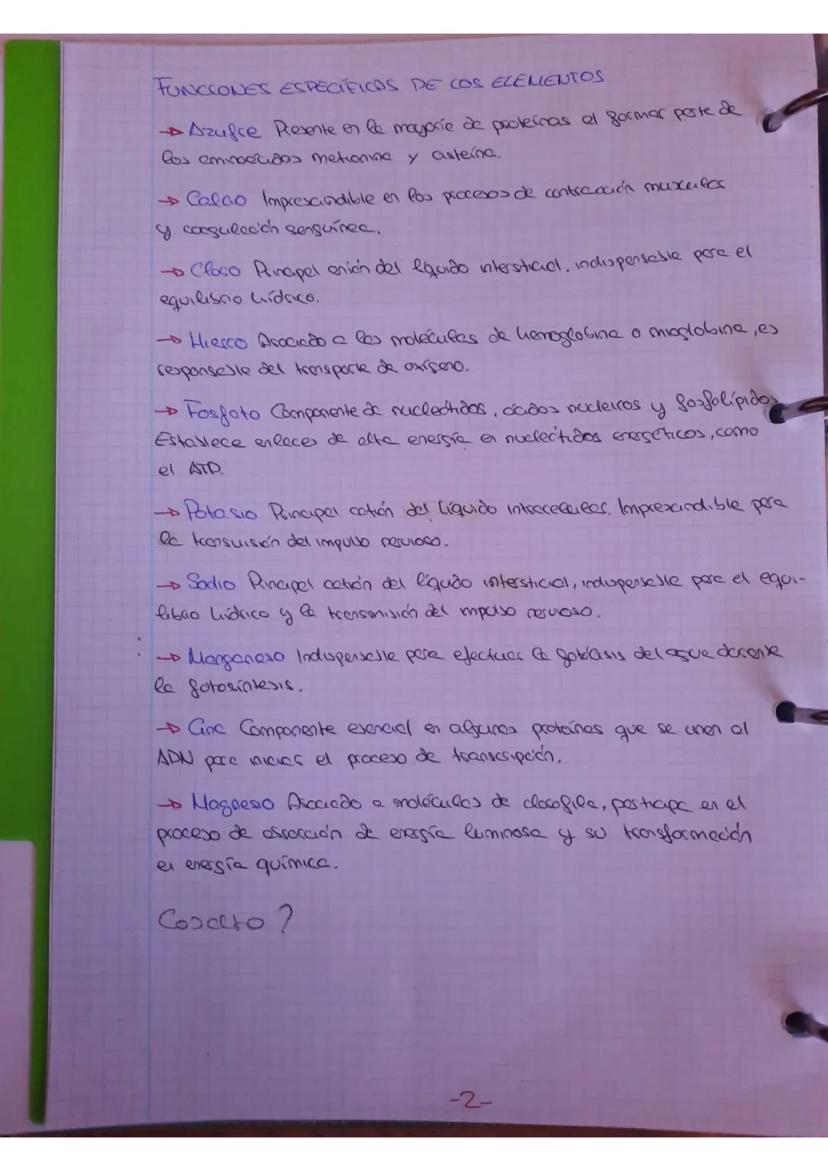 FUNCIONES ESPECÍFICAS DE LOS ELEMENTOS
→ Azufre Presente en la mayoría de proteínas al formar parte de
los aminoácidos metionina y cisteína.
→ Calcio Imprescindible en los procesos de contracción muscular
y coagulación sanguínea.
→ Cloro Principal anión del líquido intersticial, indispensable para el
equilibrio hídrico.
→ Hierro Asociado a las moléculas de hemoglobina o mioglobina, es
responsable del transporte de oxígeno.
→ Fosfato Componente de nucleótidos, ácidos nucleicos y fosfolípidos
Establece enlaces de alta energía en nucleótidos energéticos, como
el ATP.
→ Potasio Principal catión del líquido intracelular. Imprescindible para
la transmisión del impulso nervioso.
→ Sodio Principal catión del líquido intersticial, indispensable para el equi-
librio hídrico y la transmisión del impulso nervioso.
→ Manganeso Indispensable para efectuar la fotólisis del agua durante
la fotosíntesis.
→ Cinc Componente esencial en algunas proteínas que se unen al
ADN para iniciar el proceso de transcripción.
→ Magnesio Asociado a moléculas de clorofila, participa en el
proceso de absorción de energía luminosa y su transformación
en energía química.
Cobalto?
-2-